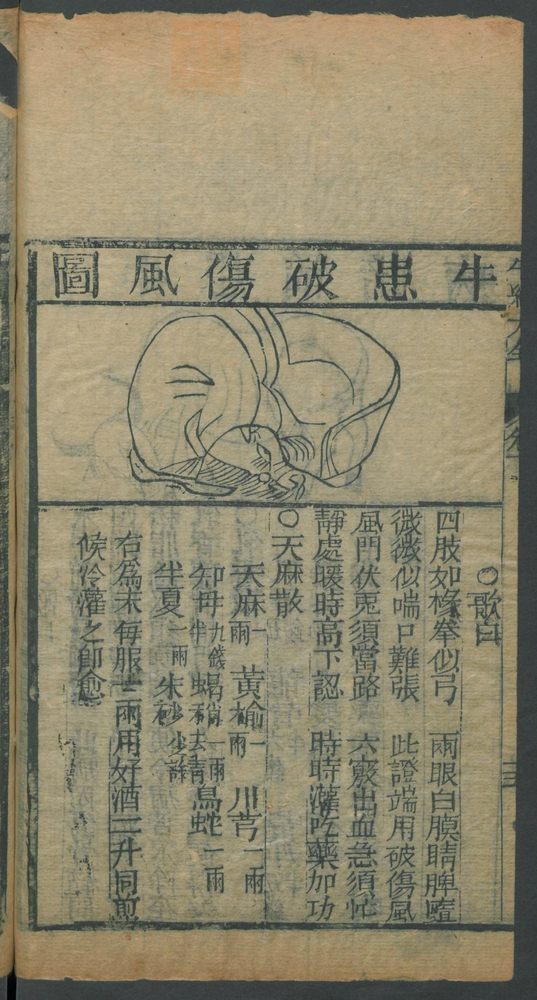 牛患破傷風圖
○歌曰
四肢如椽拳似弓 兩眼白膜睛脾
微微似喘口難張 此證端用破傷風
風門伏兎須當路 六竅出血急須忙
靜處暖時高下認 時時灌吃藥加功
○天麻散
天麻一兩 黃 一兩 川芎一兩
知母九錢 蝎 一兩 烏蛇一兩
半夏一兩 朱砂少許
右為末每服二兩用好酒二升同煎
候冷灌之即愈